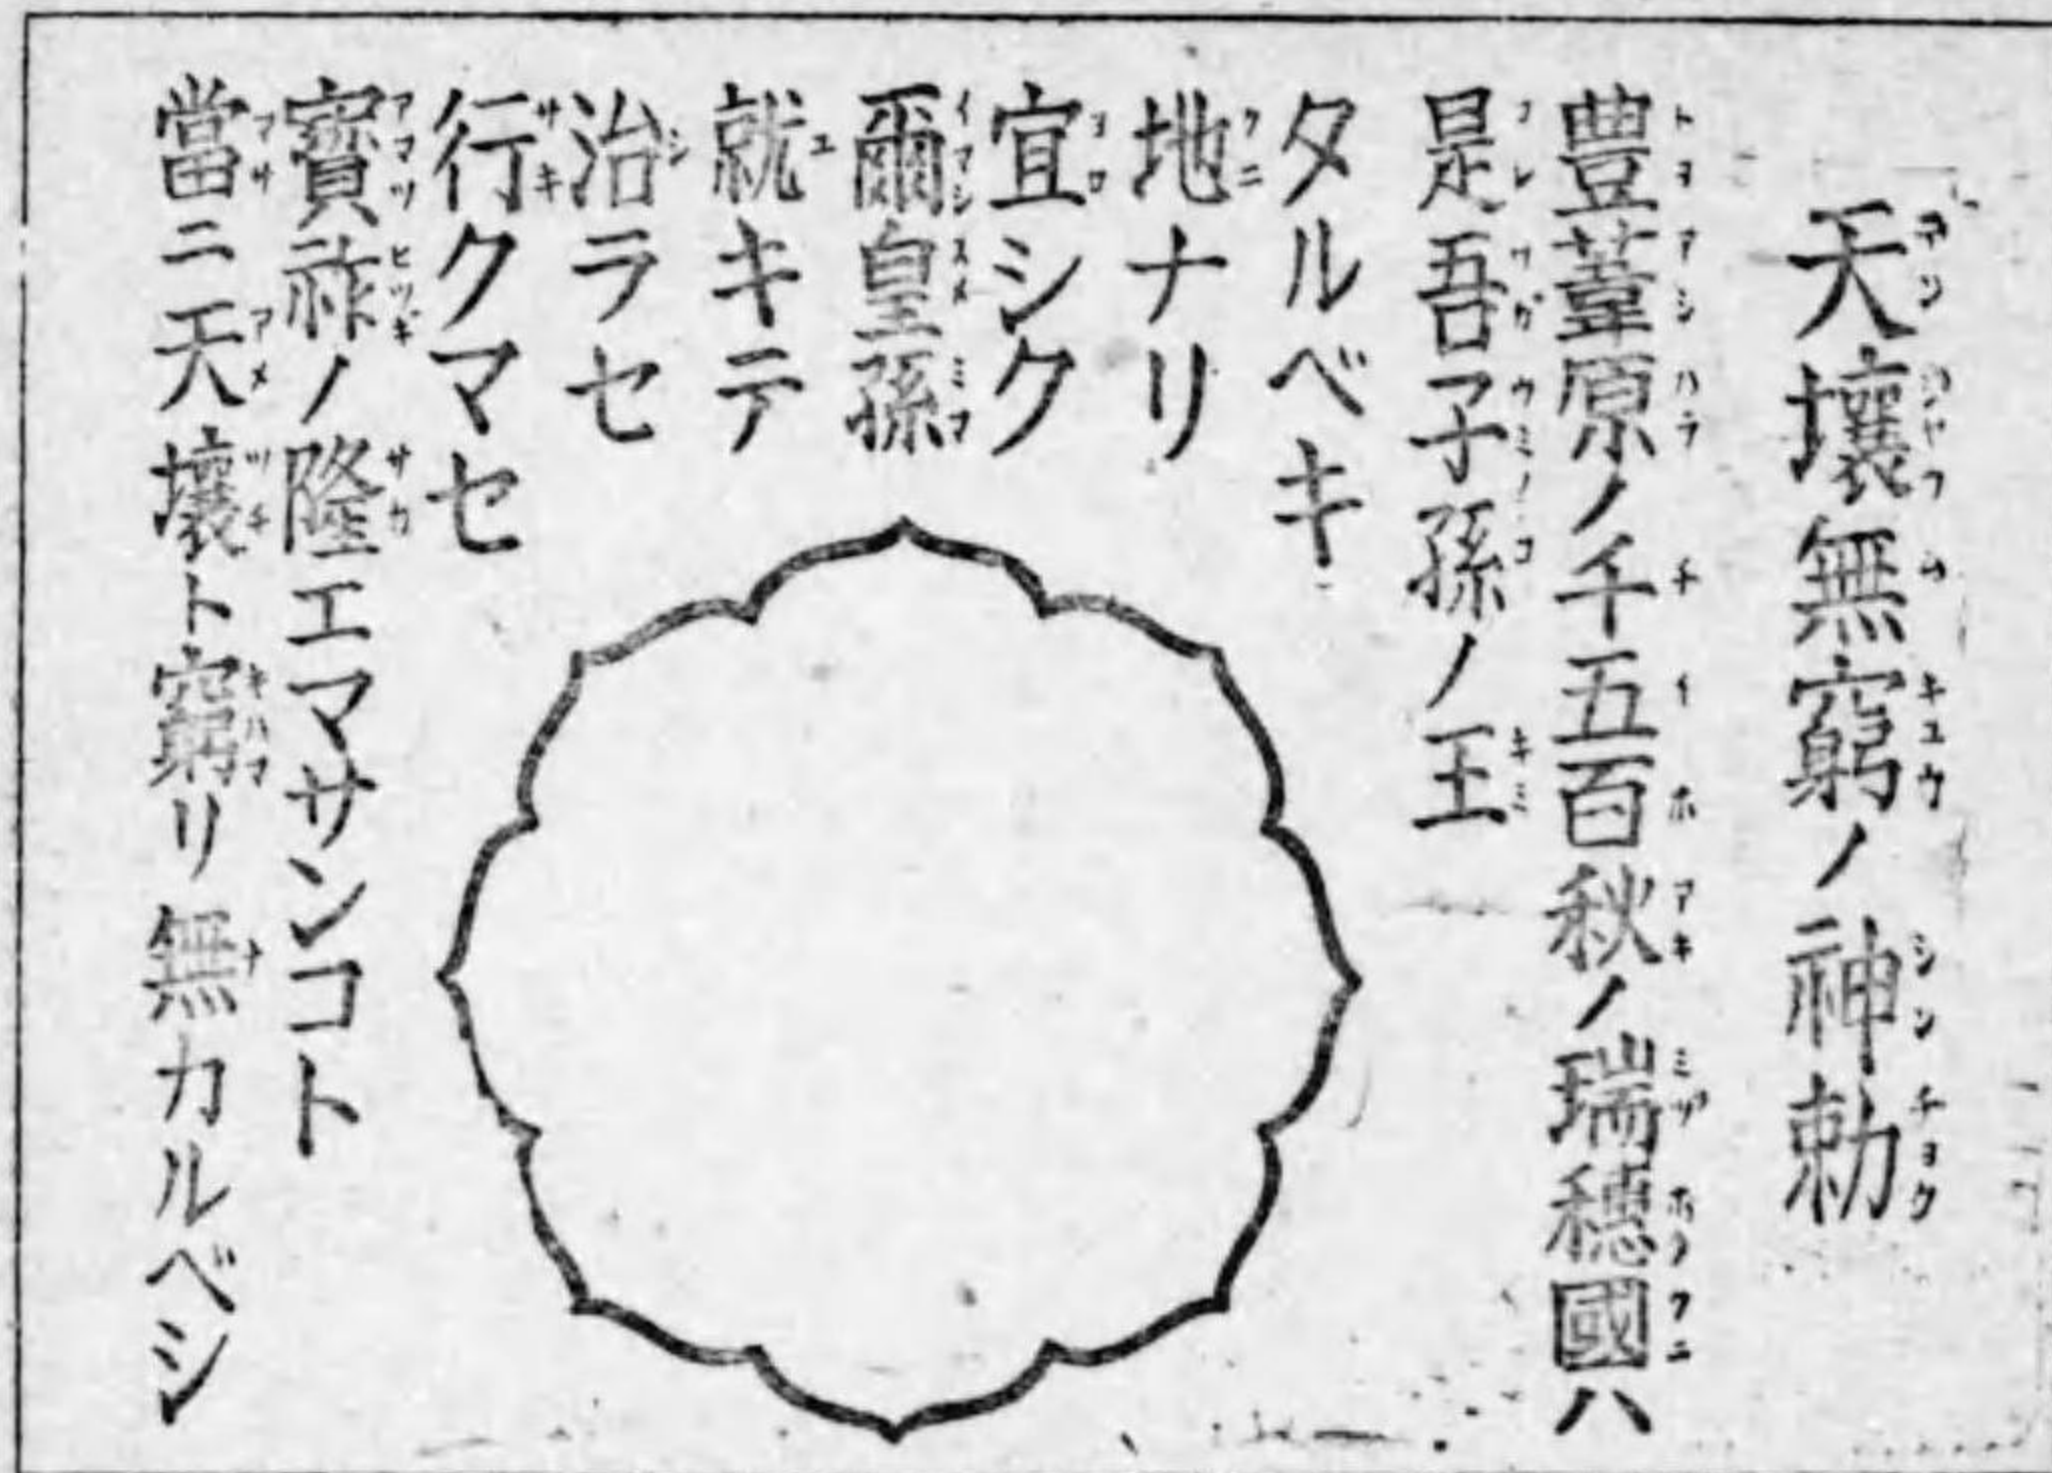 天壤無窮ノ神勅
豊葦原ノ千五百秋ノ瑞穂國ハ
是吾子孫ノ王
タルベキ
地ナリ
宜シク
爾皇孫
就キテ
治ラセ
行クマセ
寶祚ノ隆エマサンコト
當ニ天壤ト窮リ無カルベシ